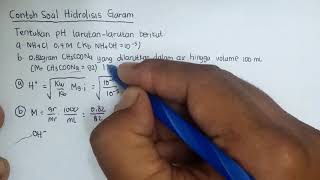 Contoh Soal Hidrolisis Garam
Tentukan pH larutan-larutan berikut.
a. NH4Cl 0,4 M (Kb NH4OH = 10⁻⁵)
b. 0,82 gram CH3COONa yang dilarutkan dalam air hingga volume 100 mL
(Mr CH3COONa = 82)
(a) H⁺ = √ Kw/Kb M g.i = √ 10⁻
(b) M = gr/mr . 1000/mL = 0,82/82
OH⁻